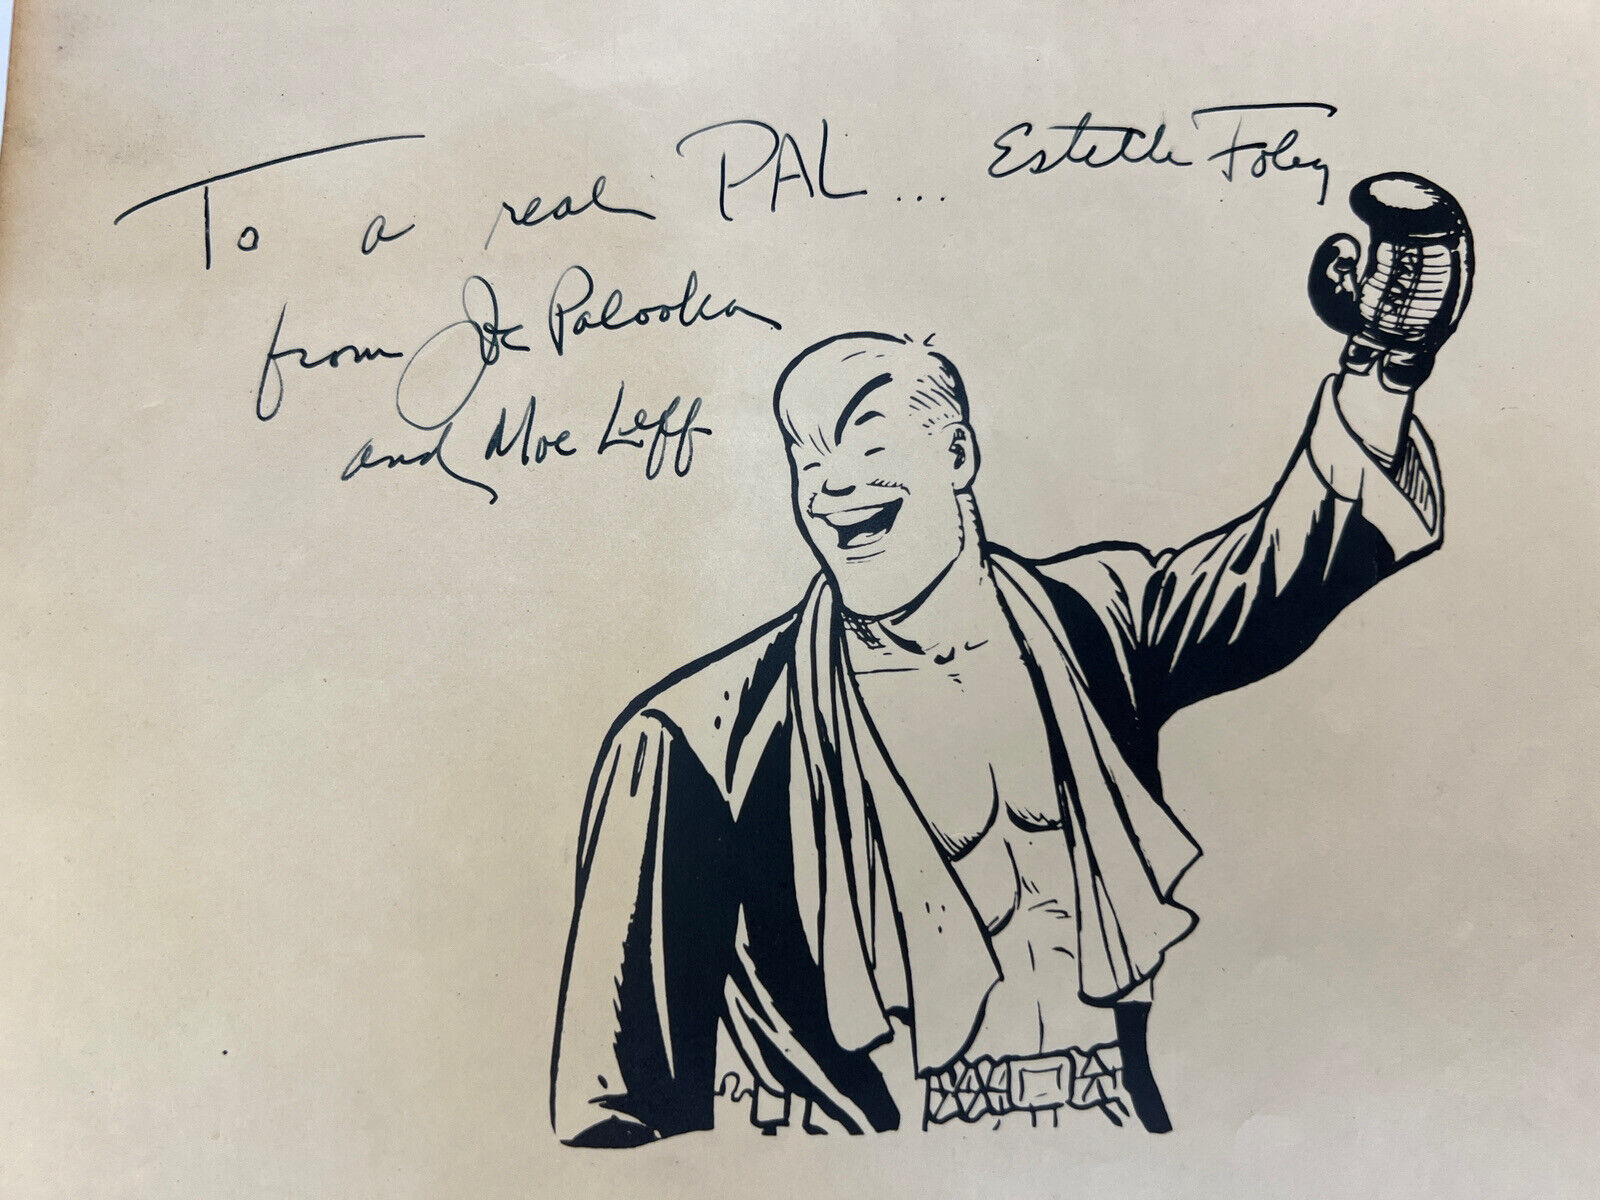 To a real PAL... Estelle Foley
from Joe Palooka
and Moe Leff